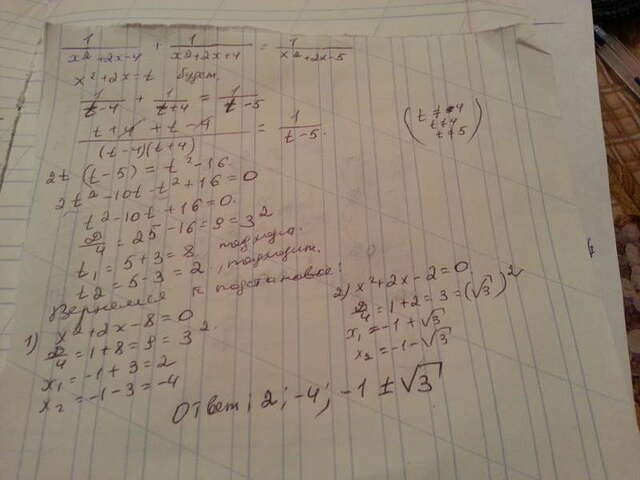 1/(x²+2x-4) + 1/(x²+2x+4) = 1/(x²+2x-5)
x²+2x=t будет
1/(t-4) + 1/(t+4) = 1/(t-5)
(t+4+t-4)/((t-4)(t+4)) = 1/(t-5).
(t ≠ -4
t ≠ 4
t ≠ 5)
2t(t-5)=t²-16.
2t²-10t-t²+16=0
t²-10t+16=0.
D/4=25-16=9=3²
t₁=5+3=8, подходит.
t2=5-3=2, подходит.
Вернемся к подстановке:
1) x²+2x-8=0
D/4=1+8=9=3².
x₁=-1+3=2
x₂=-1-3=-4
2) x²+2x-2=0
D/4=1+2=3=(√3)²
x₁=-1+√3
x₂=-1-√3
Ответ: 2; -4; -1±√3